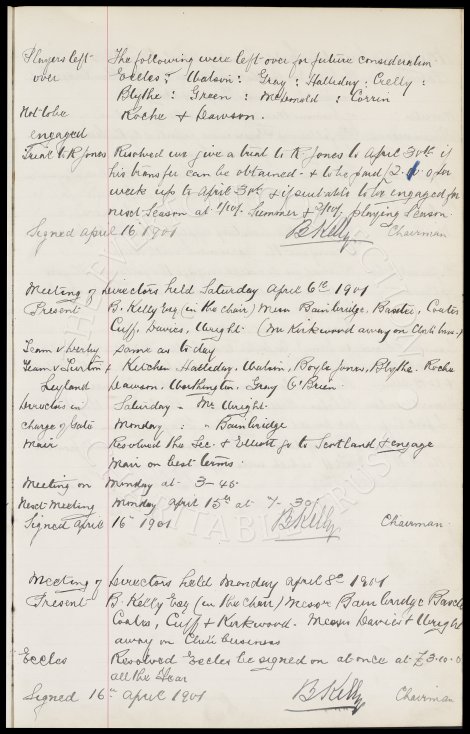 Players left over The following were left over for future consideration
Eccles : Watson : Gray : Halliday : Crelly :
Blythe : Green : McDonald : Corrin
Not to be engaged Roche & Dawson.
Trial to R Jones Resolved we give a trial to R Jones to April 30th if
his transfer can be obtained & to be paid for
week up to April 30th & if suitable to be engaged for
next Season at Summer & playing season.
Signed April 16 1901 B Kelly Chairman
Meeting of Directors held Saturday April 6th 1901
Present B. Kelly Esq (in the chair) Messrs Bainbridge, Baxter, Coates
Cuff, Davies, Wright (Mr Kirkwood away on Club buss.)
Team v Derby same as to day
Team v Turton & Kitchen Halliday, Watson, Boyle Jones, Blythe. Roche
Leyland Dawson, Worthington. Gray O'Brien.
Directors in Saturday - Mr Wright.
charge of Gate Monday : " Bainbridge
Muir Resolved the Sec. & Elliott go to Scotland & engage
Muir on best terms.
Meeting on Monday at 3-45.
Next Meeting Monday April 15th at 7-30.
Signed April 16 1901 B Kelly Chairman.
Meeting of Directors held Monday April 8th 1901
Present B. Kelly Esq (in the Chair) Messrs Bainbridge
Coates, Cuff & Kirkwood. Messrs Davies & Wright
away on Club business
Eccles Resolved Eccles be signed on at once at £3-10-0
all the year
Signed 16th April 1901 B Kelly Chairman